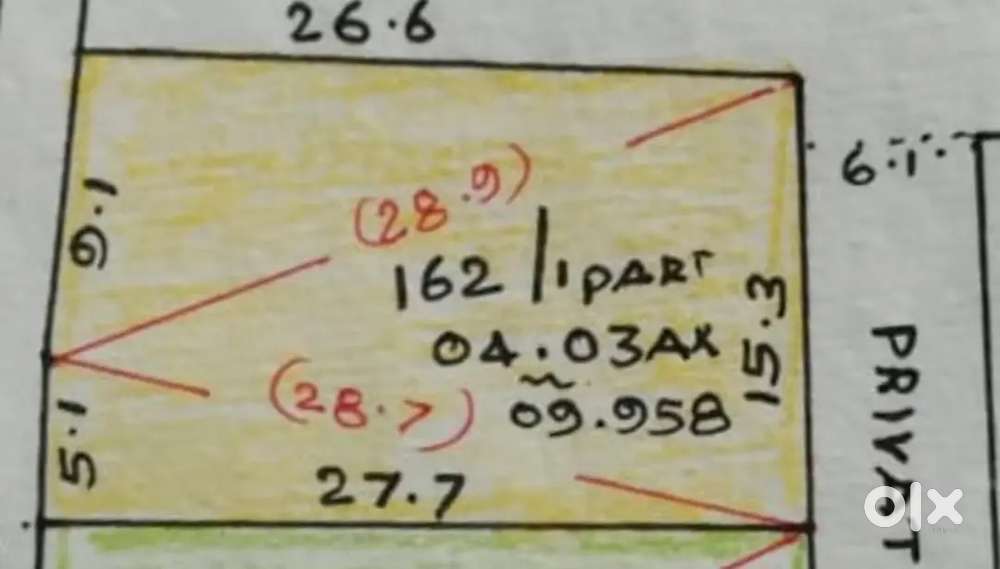 26.6
6.1
9.1
(28.9)
162/1PART
04.03AR
09.958
15.3
(28.7)
5.1
27.7
PRIVAT
olx